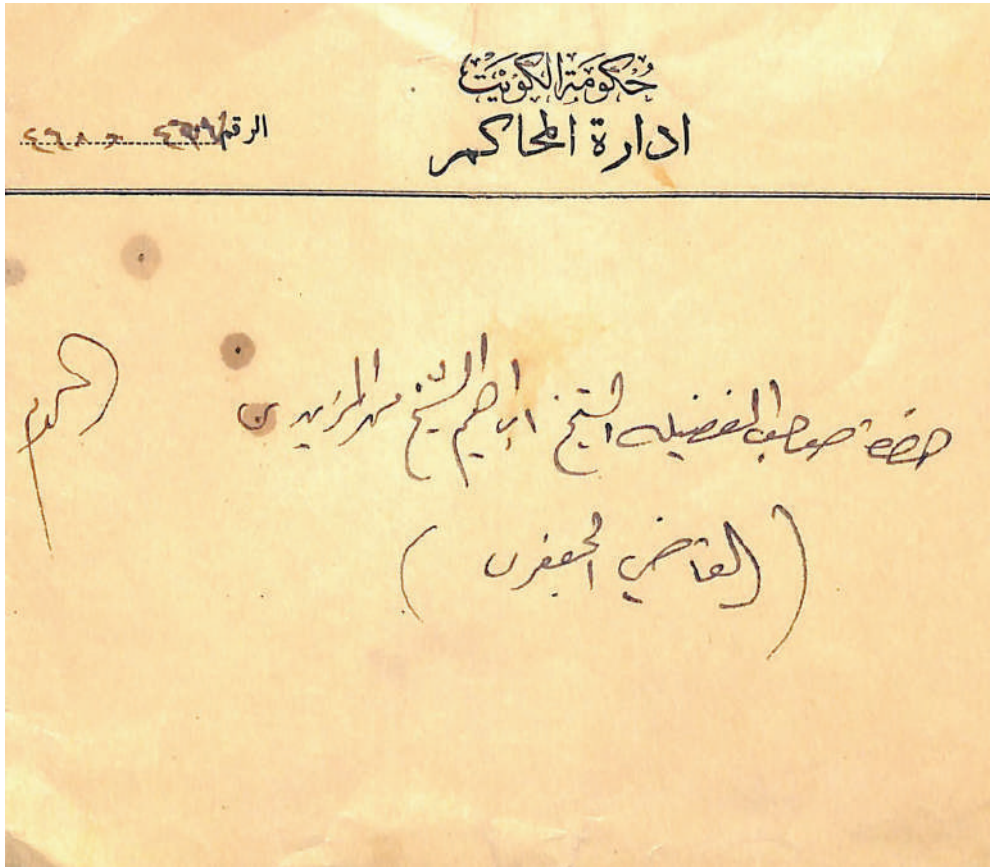 حكومة الكويت
ادارة المحاكم
الرقم
حضرة صاحب الفضيلة الشيخ ابراهيم الشيخ محمد المزيدي المحترم
(القاضي الجعفري)